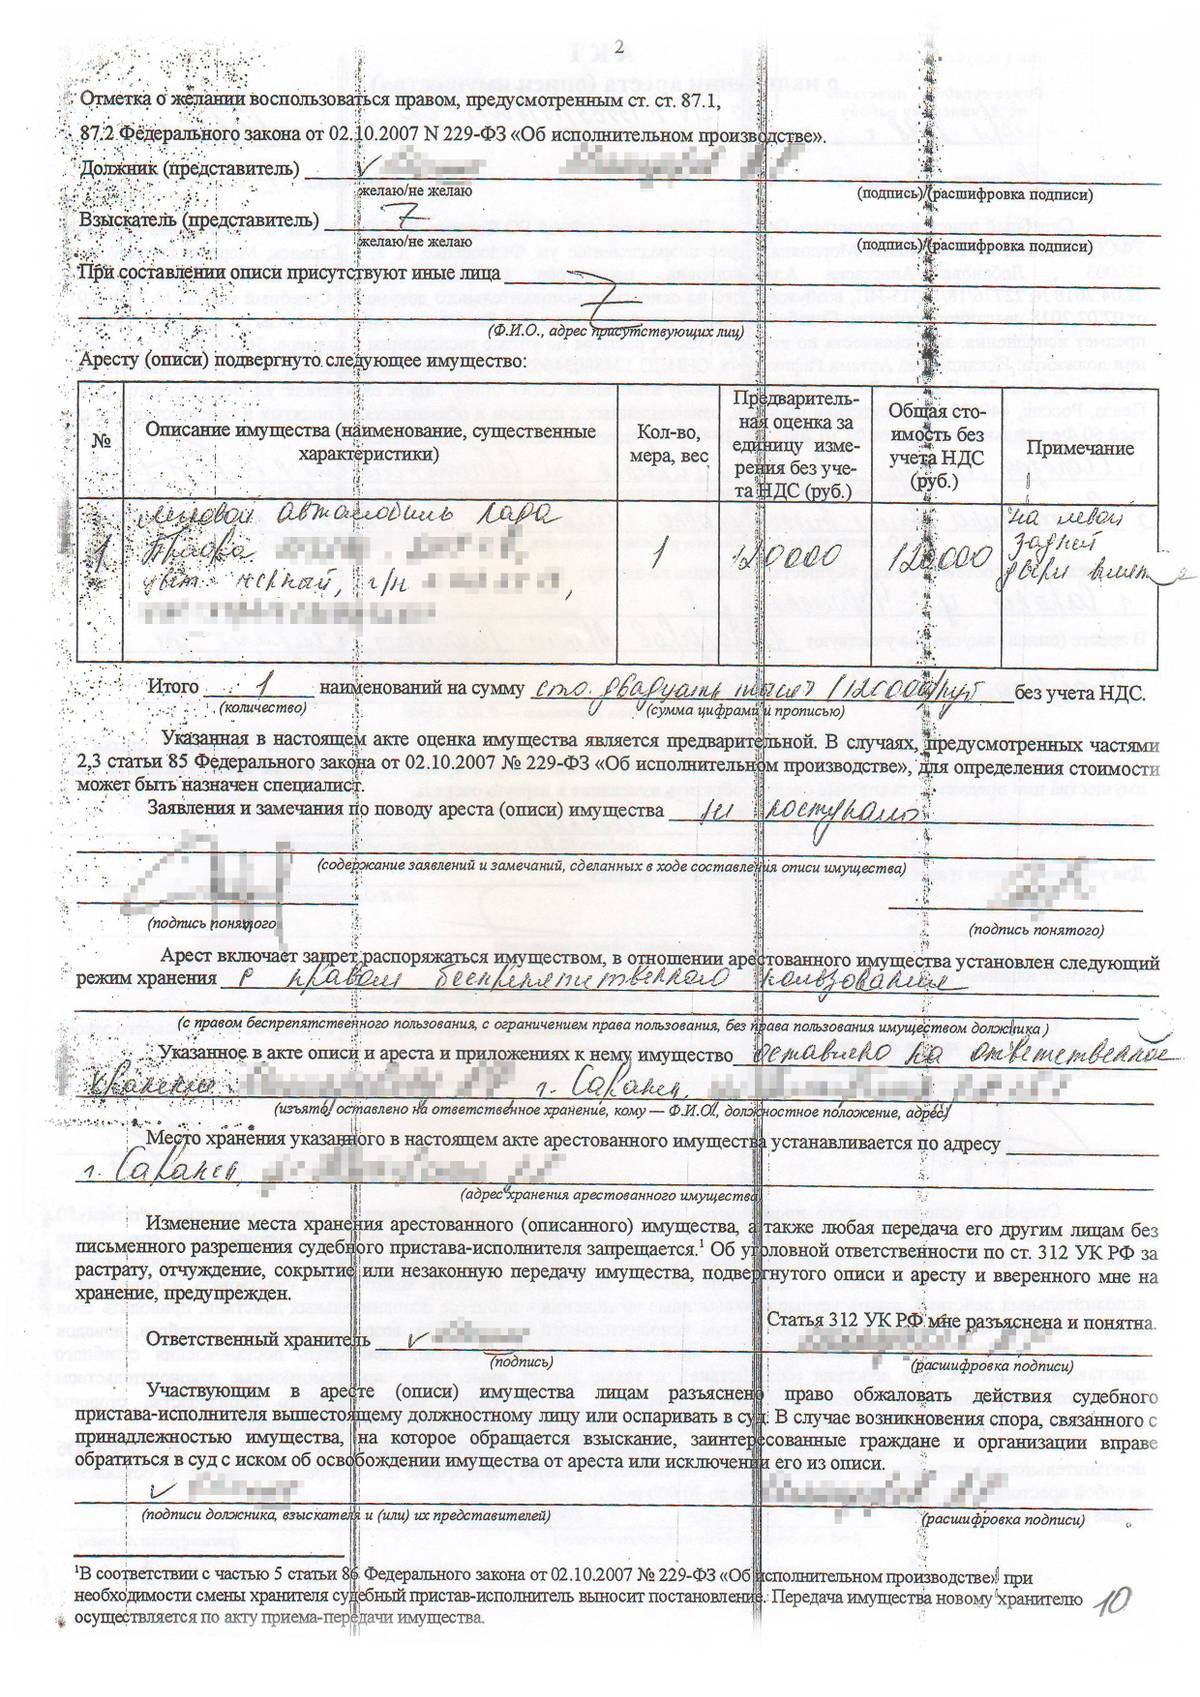 2
Отметка о желании воспользоваться правом, предусмотренным ст. ст. 87.1,
87.2 Федерального закона от 02.10.2007 N 229-ФЗ «Об исполнительном производстве».
Должник (представитель)
желаю/не желаю (подпись)/(расшифровка подписи)
Взыскатель (представитель)
желаю/не желаю (подпись)/(расшифровка подписи)
При составлении описи присутствуют иные лица
(Ф.И.О., адрес присутствующих лиц)
Аресту (описи) подвергнуто следующее имущество:
№
Описание имущества (наименование, существенные
характеристики)
Кол-во,
мера, вес
Предваритель-
ная оценка за
единицу изме-
рения без уче-
та НДС (руб.)
Общая сто-
имость без
учета НДС
(руб.)
Примечание
1
легковой автомобиль Лада
Приора
цвет черный, г/н
1
120000
120000
на левой
задней
двери вмят
Итого 1 наименований на сумму сто двадцать тысяч (120000) руб без учета НДС.
(количество) (сумма цифрами и прописью)
Указанная в настоящем акте оценка имущества является предварительной. В случаях, предусмотренных частями
2,3 статьи 85 Федерального закона от 02.10.2007 № 229-ФЗ «Об исполнительном производстве», для определения стоимости
может быть назначен специалист.
Заявления и замечания по поводу ареста (описи) имущества не поступало
(содержание заявлений и замечаний, сделанных в ходе составления описи имущества)
(подпись понятого) (подпись понятого)
Арест включает запрет распоряжаться имуществом, в отношении арестованного имущества установлен следующий
режим хранения с правом беспрепятственного пользования
(с правом беспрепятственного пользования, с ограничением права пользования, без права пользования имуществом должника )
Указанное в акте описи и ареста и приложениях к нему имущество оставлено на ответственное
хранение г. Саранск,
(изъято/ оставлено на ответственное хранение, кому — Ф.И.О., должностное положение, адрес)
Место хранения указанного в настоящем акте арестованного имущества устанавливается по адресу
г. Саранск,
(адрес хранения арестованного имущества)
Изменение места хранения арестованного (описанного) имущества, а также любая передача его другим лицам без
письменного разрешения судебного пристава-исполнителя запрещается.¹ Об уголовной ответственности по ст. 312 УК РФ за
растрату, отчуждение, сокрытие или незаконную передачу имущества, подвергнутого описи и аресту и вверенного мне на
хранение, предупрежден.
Статья 312 УК РФ мне разъяснена и понятна.
Ответственный хранитель
(подпись) (расшифровка подписи)
Участвующим в аресте (описи) имущества лицам разъяснено право обжаловать действия судебного
пристава-исполнителя вышестоящему должностному лицу или оспаривать в суд. В случае возникновения спора, связанного с
принадлежностью имущества, на которое обращается взыскание, заинтересованные граждане и организации вправе
обратиться в суд с иском об освобождении имущества от ареста или исключении его из описи.
(подписи должника, взыскателя и (или) их представителей) (расшифровка подписи)
¹В соответствии с частью 5 статьи 86 Федерального закона от 02.10.2007 № 229-ФЗ «Об исполнительном производстве» при
необходимости смены хранителя судебный пристав-исполнитель выносит постановление. Передача имущества новому хранителю
осуществляется по акту приема-передачи имущества.
10